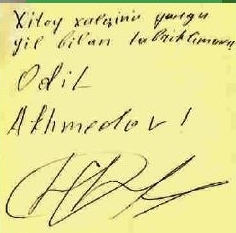 Xitoy xalqini yangi
yil bilan tabriklayman
Odil
Akhmedov!